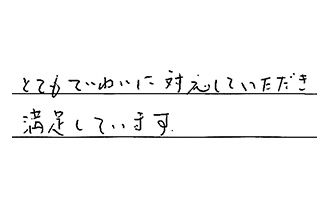 とてもていねいに対応していただき
満足しています.